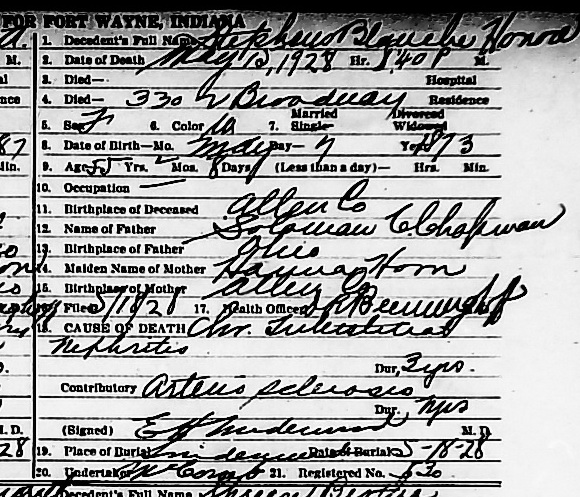 FOR FORT WAYNE, INDIANA
1. Decedent's Full Name Stephens Blanche Honora
2. Date of Death May 15, 1928 Hr. 1:40 P M.
3. Died— Hospital
4. Died— 330 Broadway Residence
Married Divorced
5. Sex F 6. Color W 7. Single Widowed
8. Date of Birth—Mo. May Day— 7 Year 1873
9. Age 55 Yrs. Mos. 8 Days (Less than a day)— Hrs. Min.
10. Occupation —
11. Birthplace of Deceased Allen Co
12. Name of Father Soloman C Chapman
13. Birthplace of Father Ohio
14. Maiden Name of Mother Hanna Horn
15. Birthplace of Mother Allen Co
Filed 5/18/28 17. Health Officer
18. CAUSE OF DEATH Chr. Interstitial
Nephritis
Dur. 3 yrs.
Contributory Arterio sclerosis
Dur. yrs
(Signed) M. D.
19. Place of Burial Lindenwood Date of Burial 5-18-28
20. Undertaker McComb 21. Registered No. 530
Decedent's Full Name